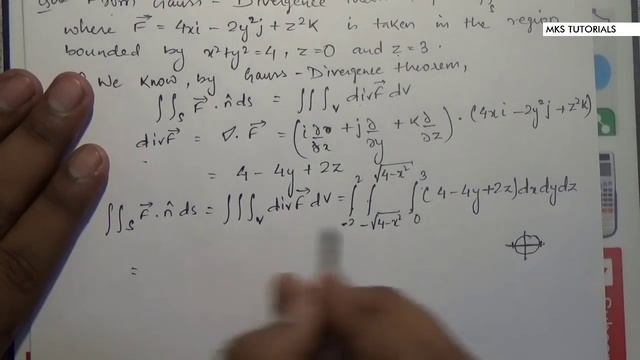 MKS TUTORIALS
Gauss - Divergence
where F⃗ = 4xi - 2y²j + z²K is taken in the region
bounded by x²+y²=4, z=0 and z=3.
We Know, by Gauss-Divergence theorem,
∬_S F⃗·n̂ ds = ∭_V divF⃗ dV
divF⃗ = ∇·F⃗ = (i ∂/∂x + j ∂/∂y + K ∂/∂z)·(4xi - 2y²j + z²K)
= 4 - 4y + 2z
∬_S F⃗·n̂ ds = ∭_V divF⃗ dV = ∫_{-2}^{2} ∫_{-√(4-x²)}^{√(4-x²)} ∫_0^3 (4-4y+2z)dxdydz
=